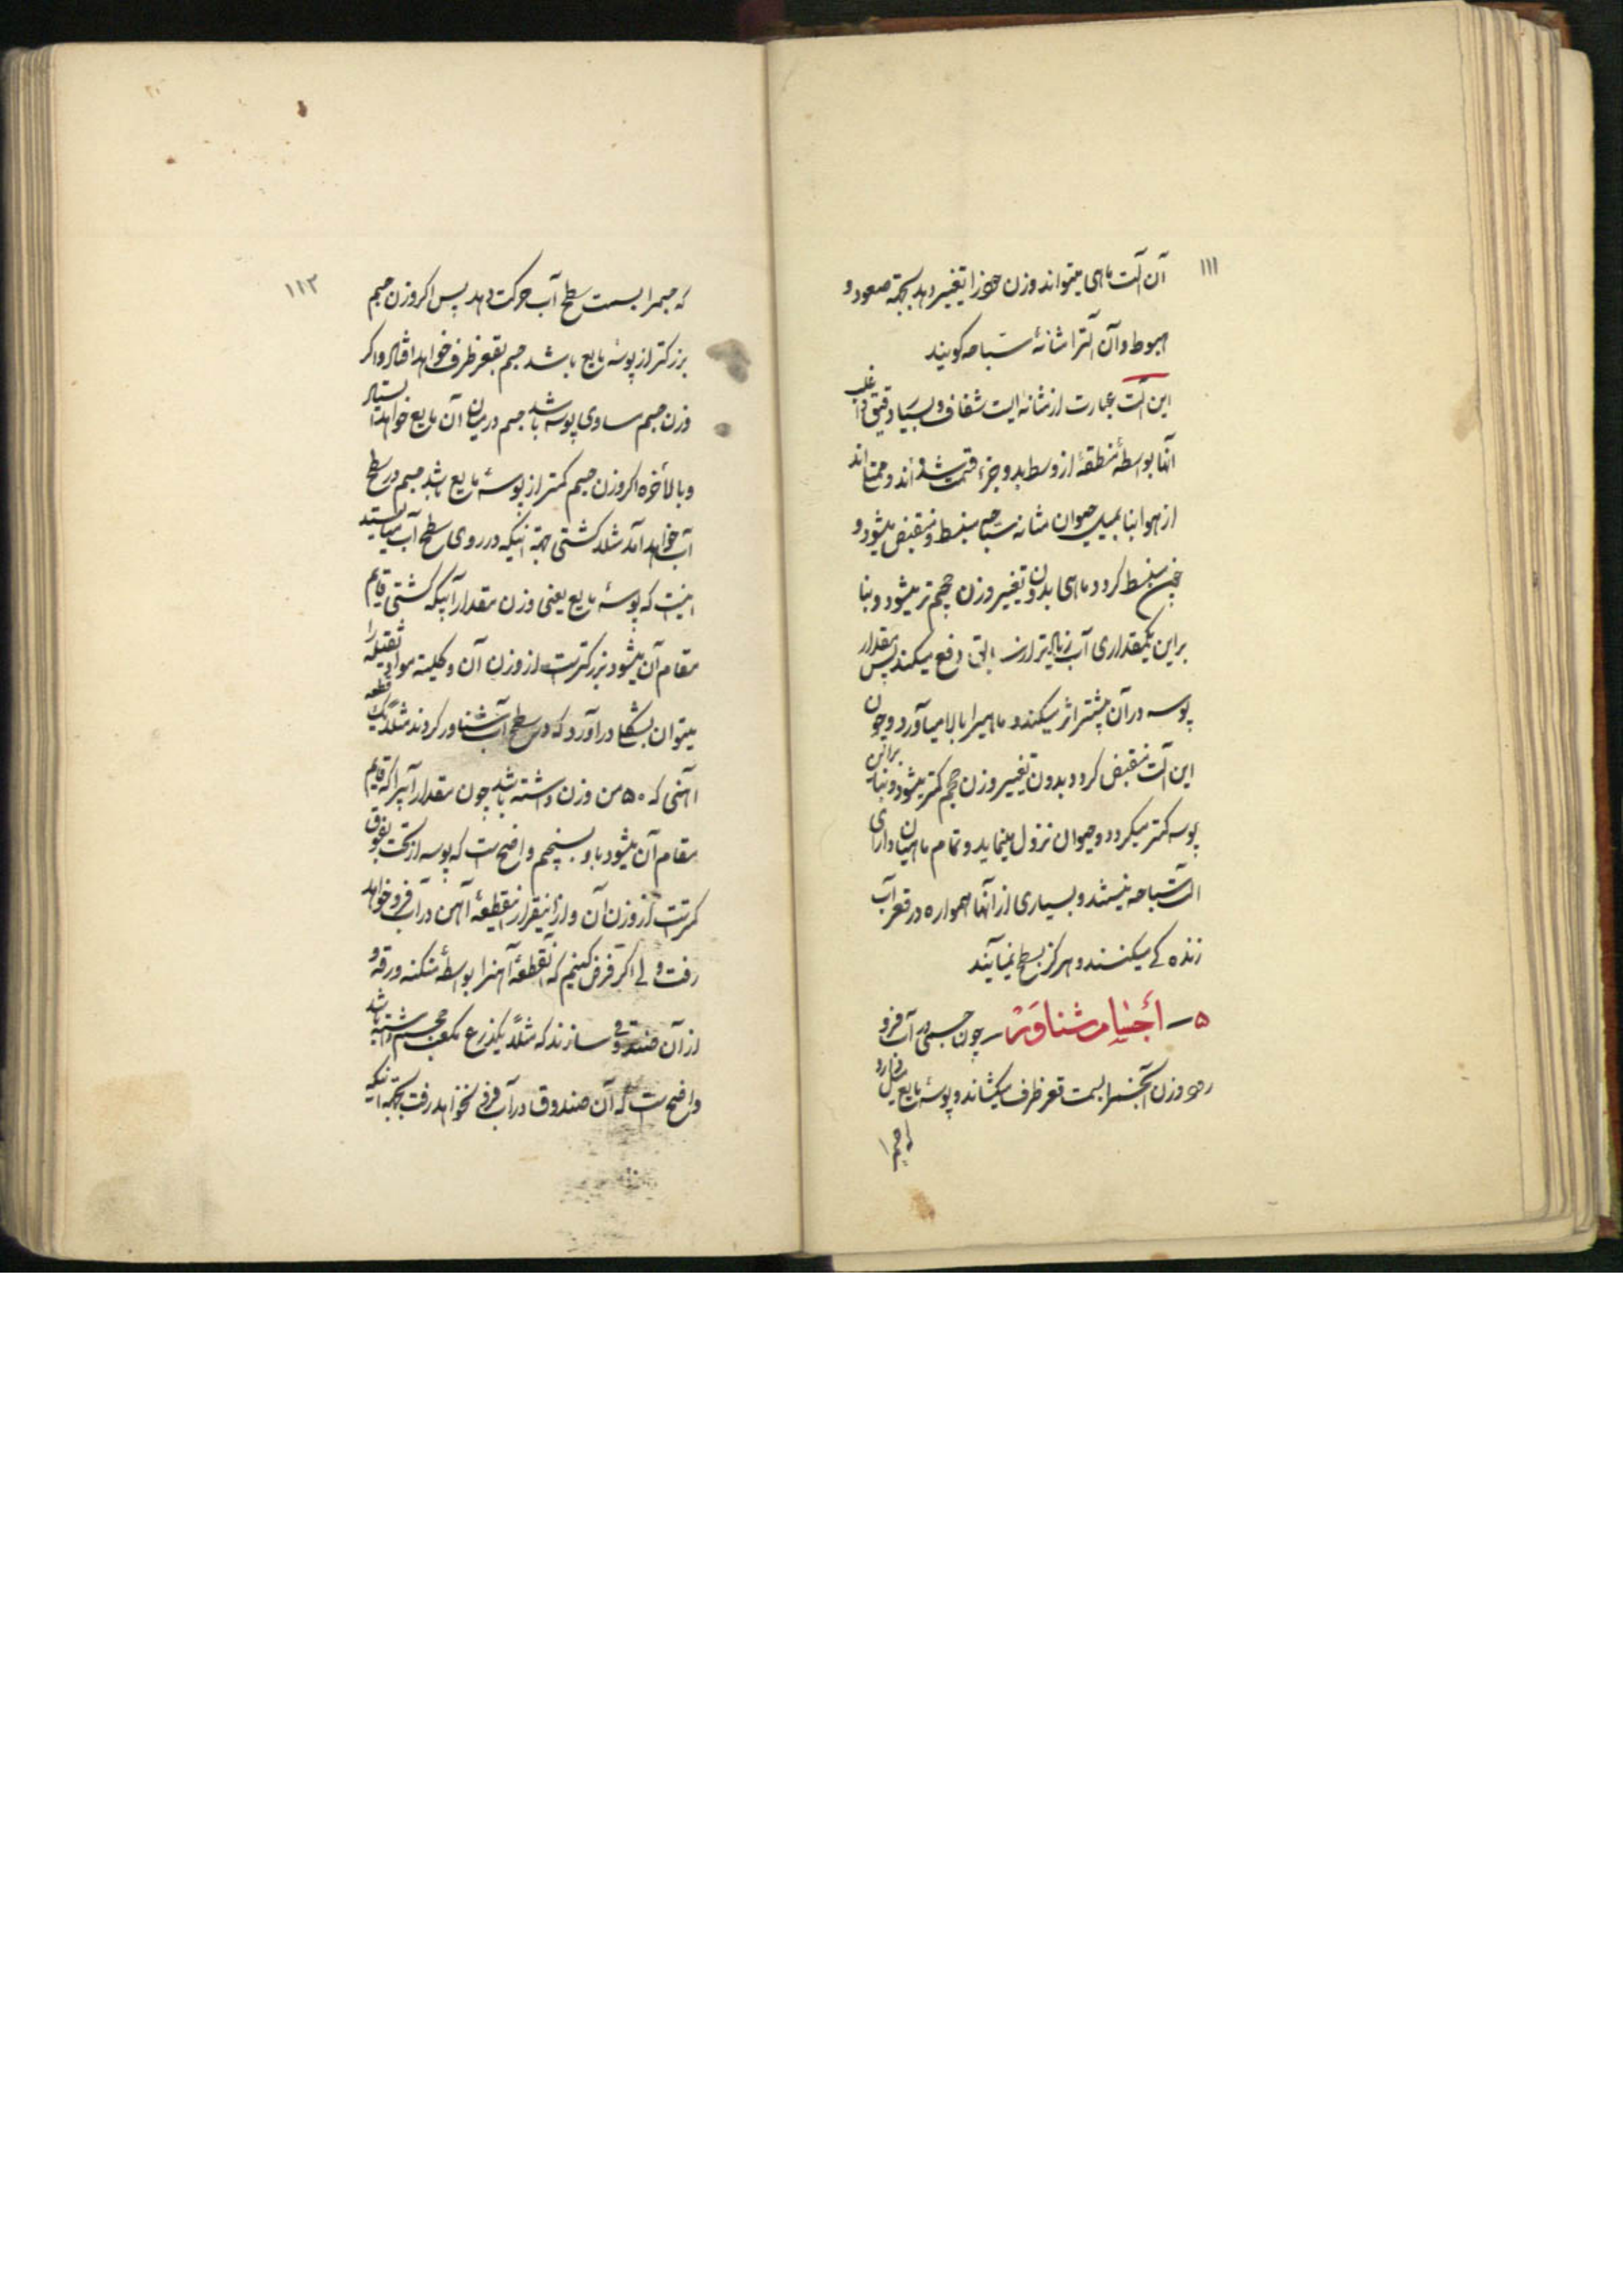 ۱۱۱
آن آلت ماهی میتواند وزن خود را تغییر دهد بجهة صعود و
هبوط و آن آلترا مثانهٔ سبّاحه کویند
این آلت عبارت از مثانه ایست شفاف و بسیار دقیق و اغلب
آنها بواسطهٔ منطقهٔ از وسط بدو جزء قسمت شده اند و ممتلی اند
از هوا بنا بمیل حیوان مثانه سبّاحه منبسط و منقبض میشود و
چون منبسط کردد ماهی بدون تغییر وزن حجیم تر میشود و بنا
براین یکمقداری آب زیادتر از سابق دفع میکند پس مقدار
پوسه در آن بیشتر اثر میکند و ماهیرا ببالا میآورد و چون
این آلت منقبض کردد بدون تغییر وزن حجم کمتر میشود و بنا براین
پوسه کمتر میکردد و حیوان نزول مینماید و تمام ماهیان دارای
آلت سبّاحه نیستند و بسیاری از آنها همواره در قعر آب
زنده کی میکنند و هرکز بسطح نمیآیند
۵ – أجسام شناوَر – چون جسمی در آب فرو
رود وزن آنجسم را بسمت قعر ظرف میکشاند و پوسهٔ مایع میل دارد
که جسم را
۱۱۲
که جسم را بسمت سطح آب حرکت دهد پس اکر وزن جسم
بزرکتر از پوسهٔ مایع باشد جسم بقعر ظرف خواهد افتاد و اکر
وزن جسم مساوی پوسه باشد جسم در میان آن مایع خواهد ایستاد
و بالأخره اکر وزن جسم کمتر از پوسهٔ مایع باشد جسم در سطح
آب خواهد آمد مثلا کشتی بجهة اینکه در روی سطح آب میایستد
اینست که پوسهٔ مایع یعنی وزن مقدار آبیکه کشتی قایم
مقام آن میشود بزرکتر است از وزن آن و کلیة مواد ثقیله را
میتوان بشکلی درآورد که در سطح آب شناور کردند مثلاً یک قطعه
آهنی که ۵۰ من وزن داشته باشد چون مقدار آبیرا که قایم
مقام آن میشود با او بسنجیم واضح است که پوسه از تحت بفوق
کمتر است از وزن آن و از اینقرار اینقطعهٔ آهن در آب فرو خواهد
رفت ولی اکر فرض کنیم که آنقطعهٔ آهنرا بواسطهٔ منکنه ورقه و
از آن صندوقی سازند که مثلاً یکذرع مکعب حجم داشته باشد
واضح است که آن صندوق در آب فرو نخواهد رفت بجهة اینکه